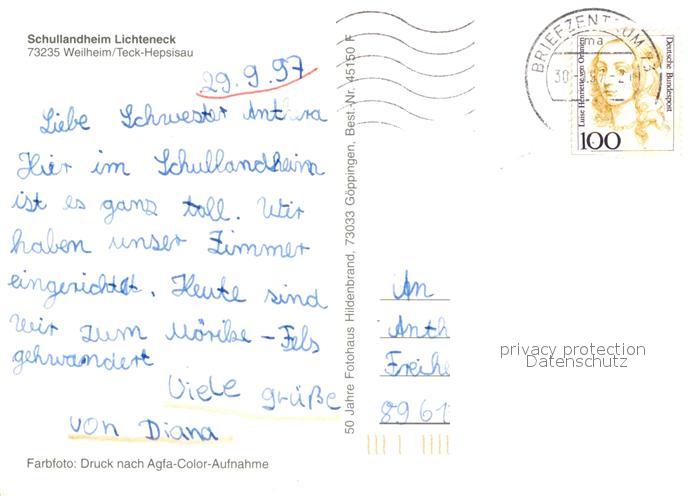 Schullandheim Lichteneck
73235 Weilheim/Teck-Hepsisau
29.9.97
Liebe Schwester Anthera
Hier im Schullandheim
ist es ganz toll. Wir
haben unser Zimmer
eingerichtet. Heute sind
wir zum Mörike-Fels
gehwandert
Viele grüße
von Diana
Farbfoto: Druck nach Agfa-Color-Aufnahme
50 Jahre Fotohaus Hildenbrand, 73033 Göppingen, Best.-Nr. 45150 F
BRIEFZENTRUM 73
ma
Luise Henriette von Oranien
Deutsche Bundespost
100
An
Anth
Freihe
8961
privacy protection
Datenschutz